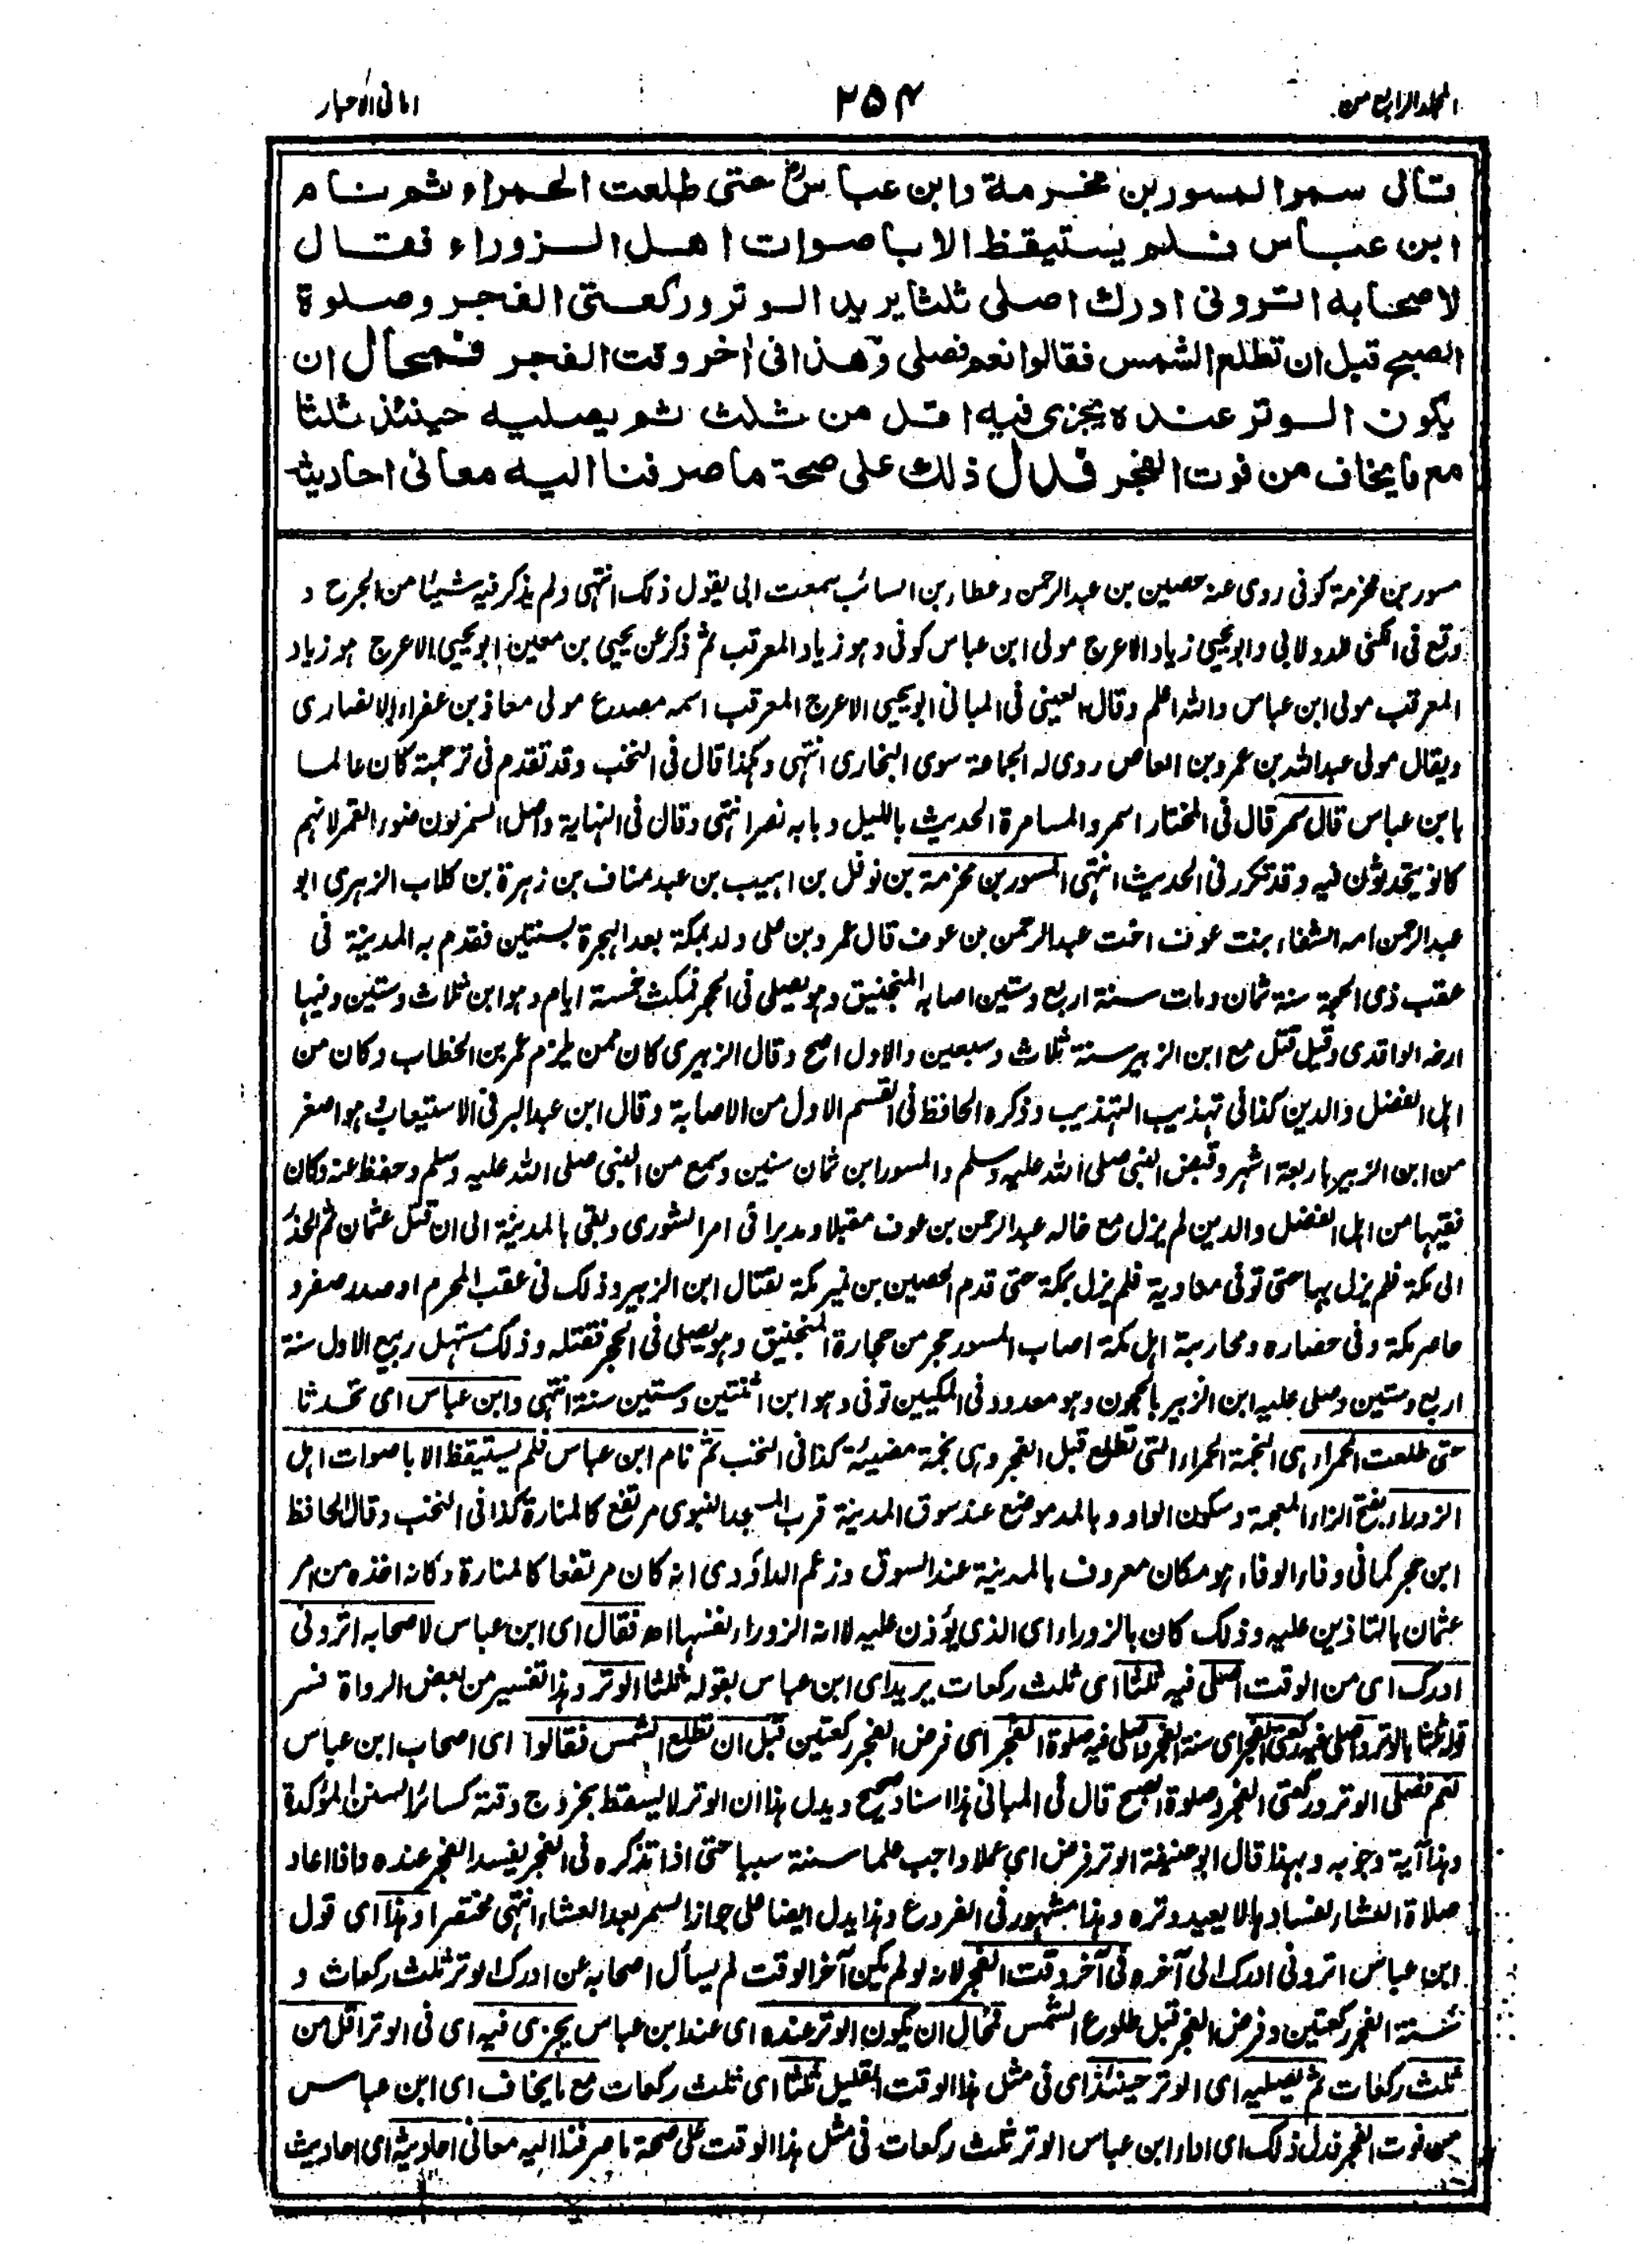 المجلد الرابع من
٢٥٤
امانی الاحبار
قال سمر المسور بن مخرمة وابن عباس حتى طلعت الحمراء ثم نام
ابن عباس فلم يستيقظ الا باصوات اهل الزوراء فقال
لاصحابه اترونی ادرك اصلی ثلثا يريد الوتر وركعتی الفجر وصلوة
الصبح قبل ان تطلع الشمس فقالوا نعم فصلی وهذا فی اخر وقت الفجر فمحال ان
يكون الوتر عنده يجزی فيه اقل من ثلث ثم يصليه حينئذ ثلثا
مع ما يخاف من فوت الفجر فدل ذلك علی صحة ما صرفنا اليه معانی احاديث
مسور بن مخرمة کوفی روی عنه حصین بن عبدالرحمن وعطاء بن السائب سمعت ابی یقول ذلک انتهی ولم یذکر فیه شیئا من الجرح و
وقع فی الکنی للدولابی وابویحیی زیاد الاعرج مولی ابن عباس کوفی وهو زیاد المعرقب ثم ذکر عن یحیی بن معین ابویحیی الاعرج هو زیاد
المعرقب مولی ابن عباس والله اعلم وقال العینی فی المبانی ابویحیی الاعرج المعرقب اسمه مصدع مولی معاذ بن عفراء الانصاری
ویقال مولی عبدالله بن عمرو بن العاص روی له الجماعة سوی البخاری انتهی وهکذا قال فی النخب وقد تقدم فی ترجمته کان عالما
بابن عباس قال سمر قال فی المختار السمر والمسامرة الحدیث باللیل وبابه نصر انتهی وقال فی النهایة واصل السمر لون ضوء القمر لانهم
کانوا یتحدثون فیه وقد تکرر فی الحدیث انتهی المسور بن مخرمة بن نوفل بن اهیب بن عبد مناف بن زهرة بن کلاب الزهری ابو
عبدالرحمن امه الشفاء بنت عوف اخت عبدالرحمن بن عوف قال عمرو بن علی ولد بمکة بعد الهجرة بسنتین فقدم به المدینة فی
عقب ذی الحجة سنة ثمان ومات سنة اربع وستین اصابه المنجنیق وهو یصلی فی الحجر فمکث خمسة ایام وهو ابن ثلاث وستین وفیها
ارخه الواقدی وقیل قتل مع ابن الزبیر سنة ثلاث وسبعین والاول اصح وقال الزبیری کان ممن یلزم عمر بن الخطاب وکان من
اهل الفضل والدین کذا فی تهذیب التهذیب وذکره الحافظ فی القسم الاول من الاصابة وقال ابن عبدالبر فی الاستیعاب هو اصغر
من ابن الزبیر باربعة اشهر وقبض النبی صلی الله علیه وسلم والمسور ابن ثمان سنین وسمع من النبی صلی الله علیه وسلم وحفظ عنه وکان
فقیها من اهل الفضل والدین لم یزل مع خاله عبدالرحمن بن عوف مقبلا ومدبرا فی امر الشوری وبقی بالمدینة الی ان قتل عثمان ثم انحدر
الی مکة فلم یزل بها حتی توفی معاویة فلم یزل بمکة حتی قدم الحصین بن نمیر مکة لقتال ابن الزبیر وذلک فی عقب المحرم او صدر صفر و
حاصر مکة وفی حصاره ومحاربة اهل مکة اصاب المسور حجر من حجارة المنجنیق وهو یصلی فی الحجر فقتله وذلک مستهل ربیع الاول سنة
اربع وستین وصلی علیه ابن الزبیر بالحجون وهو معدود فی المکیین توفی وهو ابن اثنتین وستین سنة انتهی وابن عباس ای تحدثا
حتی طلعت الحمراء هی النجمة الحمراء التی تطلع قبل الفجر وهی نجمة مضیئة کذا فی النخب ثم نام ابن عباس فلم یستیقظ الا باصوات اهل
الزوراء بفتح الزاء المعجمة وسکون الواو وبالمد موضع عند سوق المدینة قرب المسجد النبوی مرتفع کالمنارة کذا فی النخب وقال الحافظ
ابن حجر کما فی وفاء الوفاء هو مکان معروف بالمدینة عند السوق وزعم الداؤدی انه کان مرتفعا کالمنارة وکانه اخذه من امر
عثمان بالتاذین علیه وذلک کان بالزوراء ای الذی یؤذن علیه لا انه الزوراء نفسها اهـ فقال ای ابن عباس لاصحابه اترونی
ادرک ای من الوقت اصلی فیه ثلثا ای ثلث رکعات یرید ای ابن عباس بقوله ثلثا الوتر وهذا تفسیر من بعض الرواة فسر
قوله ثلثا بالوتر واصلی فیه رکعتی الفجر ای سنة الفجر واصلی فیه صلوة الفجر ای فرض الفجر رکعتین قبل ان تطلع الشمس فقالوا ای اصحاب ابن عباس
نعم فصلی الوتر ورکعتی الفجر وصلوة الصبح قال فی المبانی هذا اسناد صحیح ویدل هذا ان الوتر لا یسقط بخروج وقته کسائر السنن المؤکدة
وهذا آیة وجوبه وبهذا قال ابوحنیفة الوتر فرض ای عملا واجب علما سنة سببا حتی اذا تذکره فی الفجر یفسد الفجر عنده واذا اعاد
صلاة العشاء لفسادها لا یعید وتره وهذا مشهور فی الفروع وهذا یدل ایضا علی جواز السمر بعد العشاء انتهی مختصرا وهذا ای قول
ابن عباس اترونی ادرک الی آخره فی آخر وقت الفجر لانه لو لم یکن آخر الوقت لم یسأل اصحابه عن ادرک الوتر ثلث رکعات و
سنة الفجر رکعتین وفرض الفجر قبل طلوع الشمس فمحال ان یکون الوتر عنده ای عند ابن عباس یجزی فیه ای فی الوتر اقل من
ثلث رکعات ثم یصلیه ای الوتر حینئذ ای فی مثل هذا الوقت القلیل ثلثا ای ثلث رکعات مع ما یخاف ای ابن عباس
من فوت الفجر فدل ذلک ای اداء ابن عباس الوتر ثلث رکعات فی مثل هذا الوقت علی صحة ما صرفنا الیه معانی احادیث ای احادیث